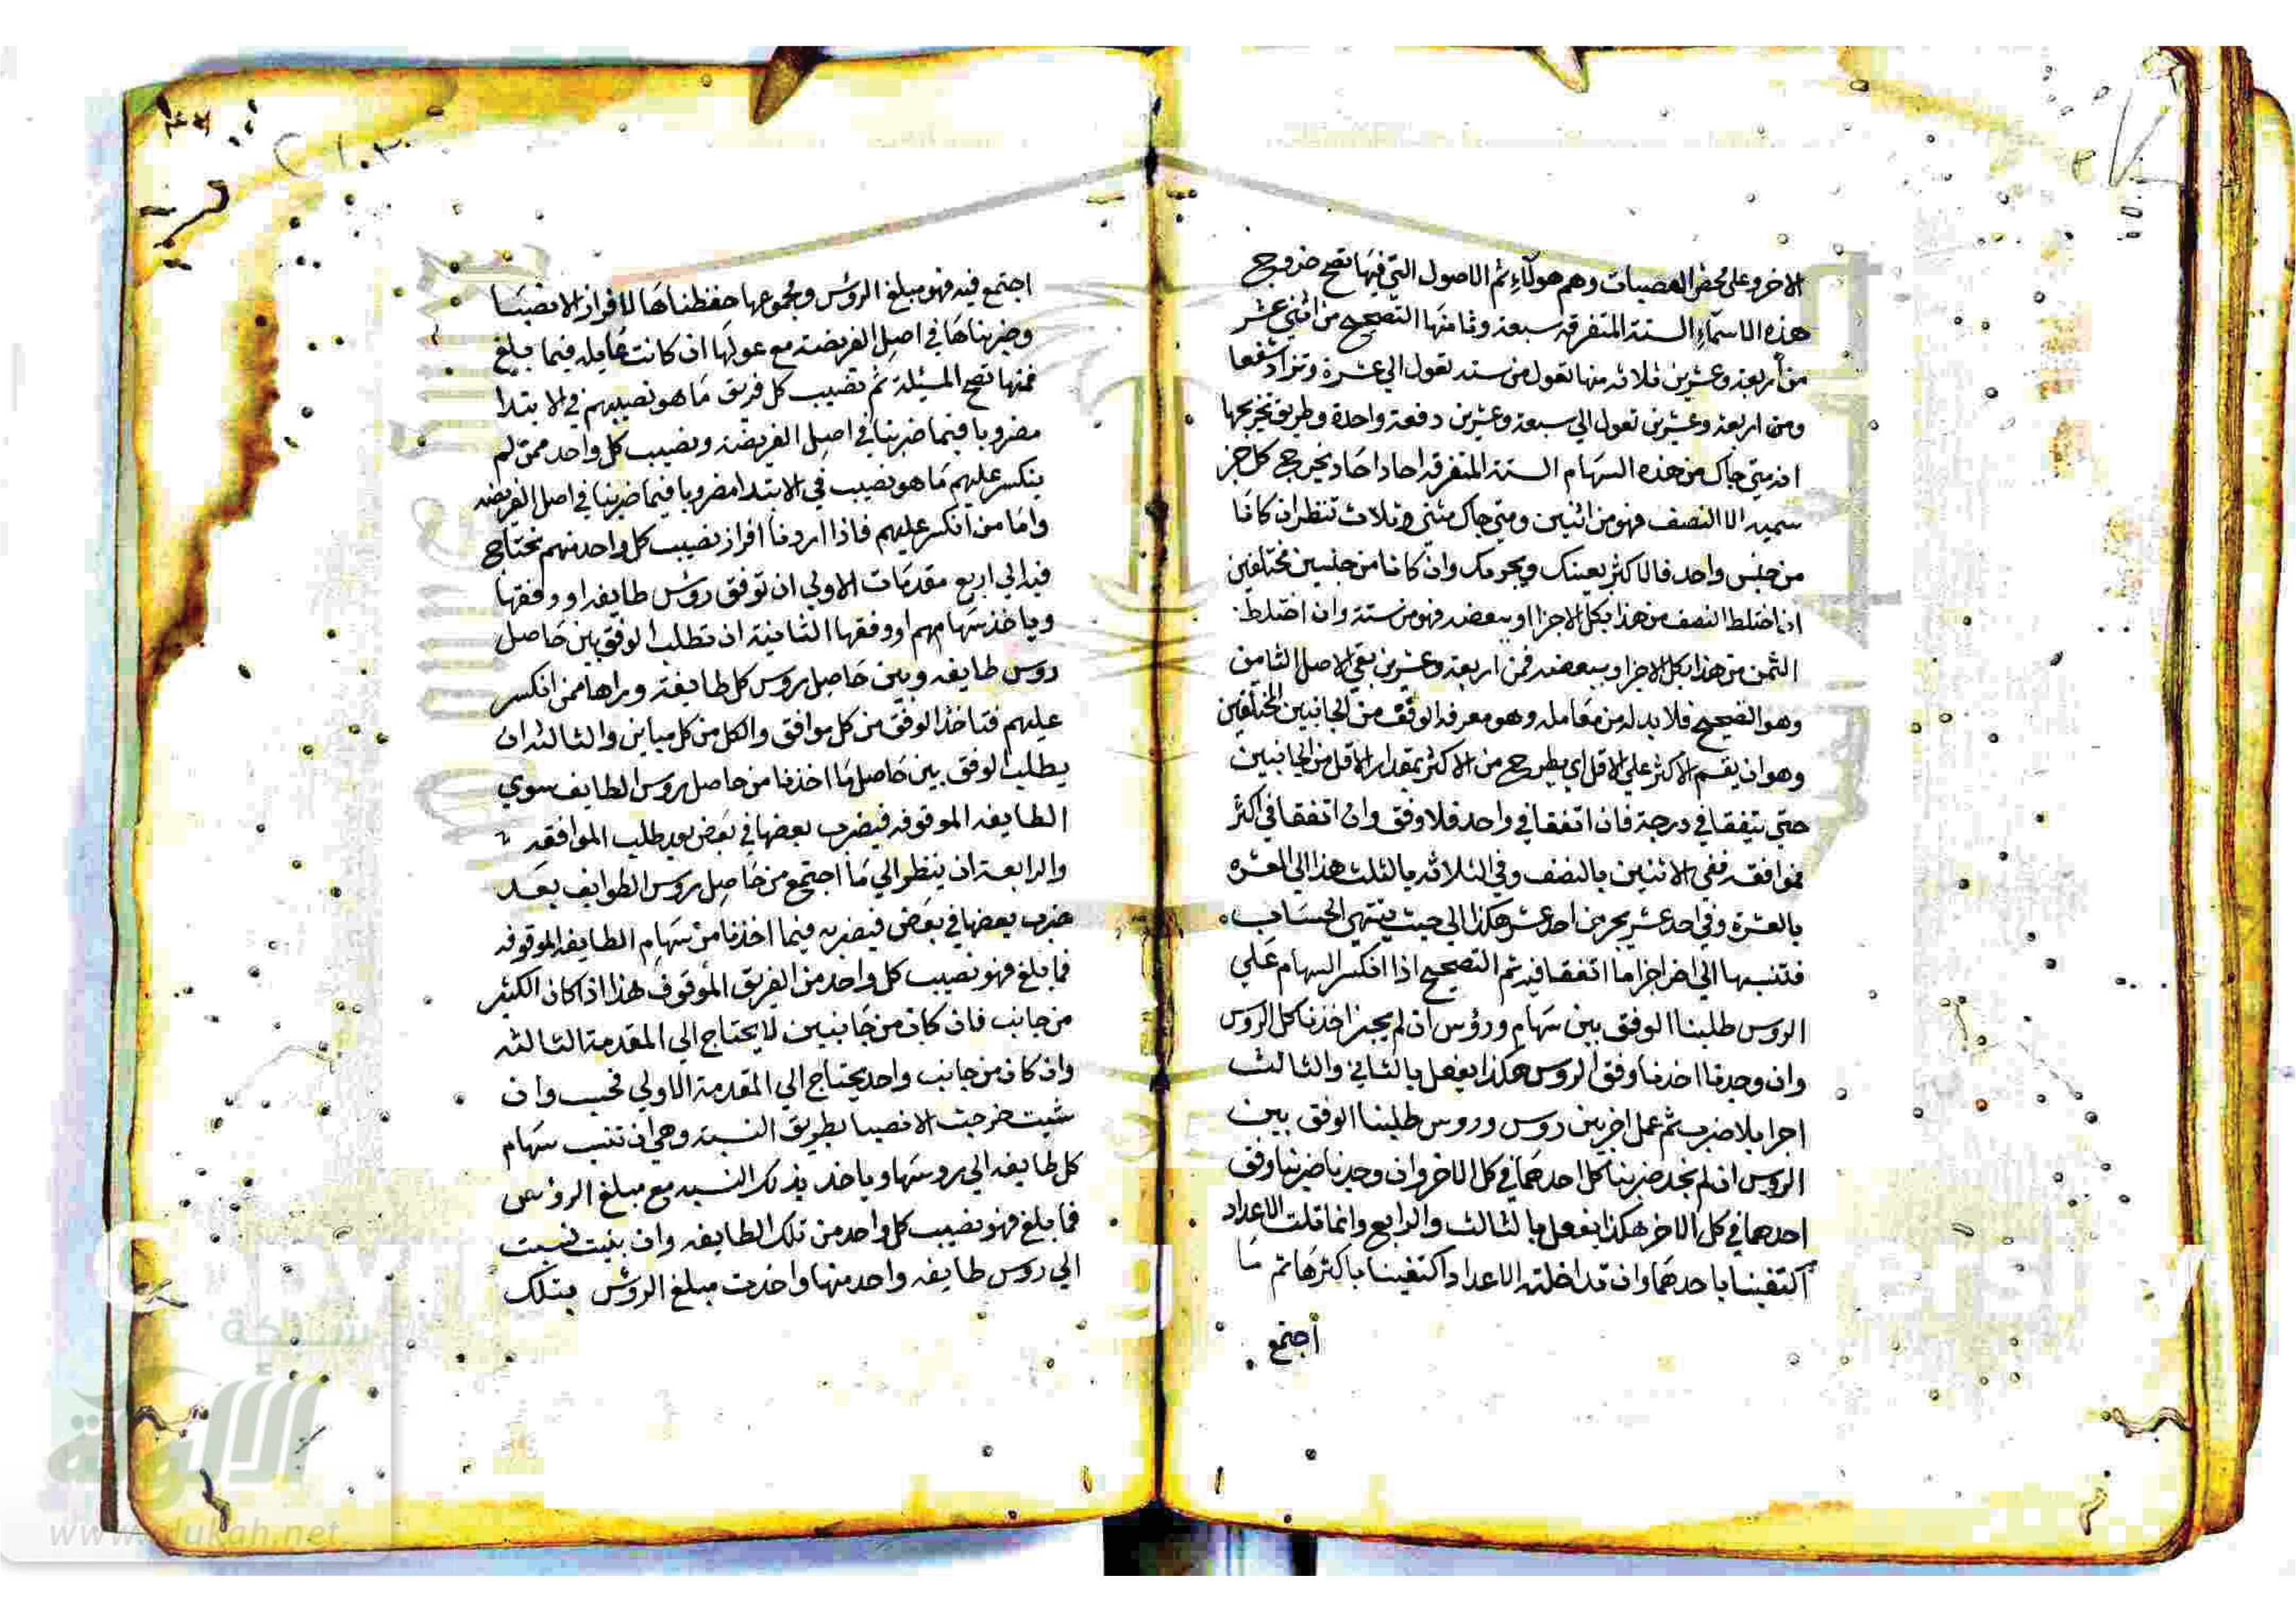 الاخر وعلى محض العصبات وهم هولآءِ ثم الاصول التي فيها تصح خروج
هذه الاسمآءِ الستة المتفرقه سبعة وثامنها التصحيح من اثني عشر
من أربعة وعشرين ثلاثه منها تعول من سته تعول الي عشرة وترا وشفعا
ومن اربعة وعشرين تعول الي سبعة وعشرين دفعة واحدة وطريق تخريجها
انه متي جاك من هذه السهام الستة المتفرقه احادا احاد يخرج كل جز
سميه الا النصف فهو من اثنين ومتي جاك مثني وثلاث تنظر ان كانا
من جنس واحد فالاكثر يعينك ويجرمك وان كانا من جنسين مختلفين
اذا اختلط النصف من هذا بكل الاجزا او ببعضه فهو من ستة وان اختلط
الثمن من هذا بكل الاجزا وببعضه فمن اربعة وعشرين بقي الاصل الثامن
وهو الصحيح فلا بد له من معامله وهو معرفه الوفق من الجانبين المختلفين
وهو ان يقسم الاكثر علي الاقل اي يطرح من الاكثر بمقدار الاقل من الجانبين
حتي يتفقا في درجة فان اتفقا في واحد فلا وفق وان اتفقا في اكثر
فموافقه ففي الاثنين بالنصف وفي الثلاثه بالثلث هذا الي العشره
بالعشرة وفي احد عشر بجز من احد عشر هكذا الي حيث ينتهي الحساب
فتنسبها الي اخر اجز ما اتفقا فيه ثم التصحيح اذا انكسر السهام علي
الروس طلبنا الوفق بين سهام ورؤس ان لم يجز اخذنا كل الروس
وان وجدنا اخذنا وفق الروس هكذا يفعل بالثاني والثالث
اجرا بلا ضرب ثم عمل اخر بين روس وروس طلبنا الوفق بين
الروس ان لم نجد ضربنا كل احدهما في كل الاخر وان وجدنا ضربنا وفق
احدهما في كل الاخر هكذا يفعل بالثالث والرابع وانما قلت الاعداد
اكتفينا باحدهما وان تداخلت الاعداد اكتفينا باكثرها ثم ما
اجتمع
اجتمع فيه فهو مبلغ الروس ومجموعها حفظناها لافراز الانصبا
وضربناها في اصل الفريضة مع عولها ان كانت عايله فيما فبلغ
فمنها تصح المسئلة ثم نصيب كل فريق ما هو نصيبهم في الابتدا
مضروبا فيما ضربنا في اصل الفريضة ونصيب كل واحد ممن لم
ينكسر عليهم ما هو نصيب في الابتدا مضروبا فيما ضربنا في اصل الفريضه
واما من انكسر عليهم فاذا اردنا افراز نصيب كل واحد منهم نحتاج
فيه الي اربع مقدمات الاولي ان توفق روس طايفه او وفقها
وياخذ سهامهم او وفقها الثانية ان تطلب الوفق بين حاصل
روس طايفه وبين حاصل روس كل طايفة وراها ممن انكسر
عليهم فتاخذ الوفق من كل موافق والكل من كل مباين والثالثه ان
يطلب الوفق بين حاصل ما اخذنا من حاصل روس الطايف سوي
الطايفه الموقوفه فيضرب بعضها في بعض بعد طلب الموافقه
والرابعة ان ينظر الي ما اجتمع من حاصل روس الطوايف بعد
ضرب بعضها في بعض فيضربه فيما اخذنا من سهام الطايفه الموقوفه
فما بلغ فهو نصيب كل واحد من الفريق الموقوف هذا اذا كان الكثير
من جانب فان كان من جانبين لا يحتاج الي المقدمة الثالثه
وان كان من جانب واحد يحتاج الي المقدمة الاولي فحسب وان
شيت خرجت الانصبا بطريق النسبة وهي ان تنسب سهام
كل طايفه الي روسها وياخذ بذلك النسبه مع مبلغ الروس
فما بلغ فهو نصيب كل واحد من تلك الطايفه وان شيت نسبت
الي روس طايفه واحد منها واخذت مبلغ الروس بتلك
شبكة
الألوكة
www.alukah.net